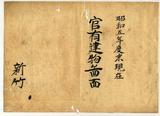 昭和五年度末現在
官有建物畧面
新竹